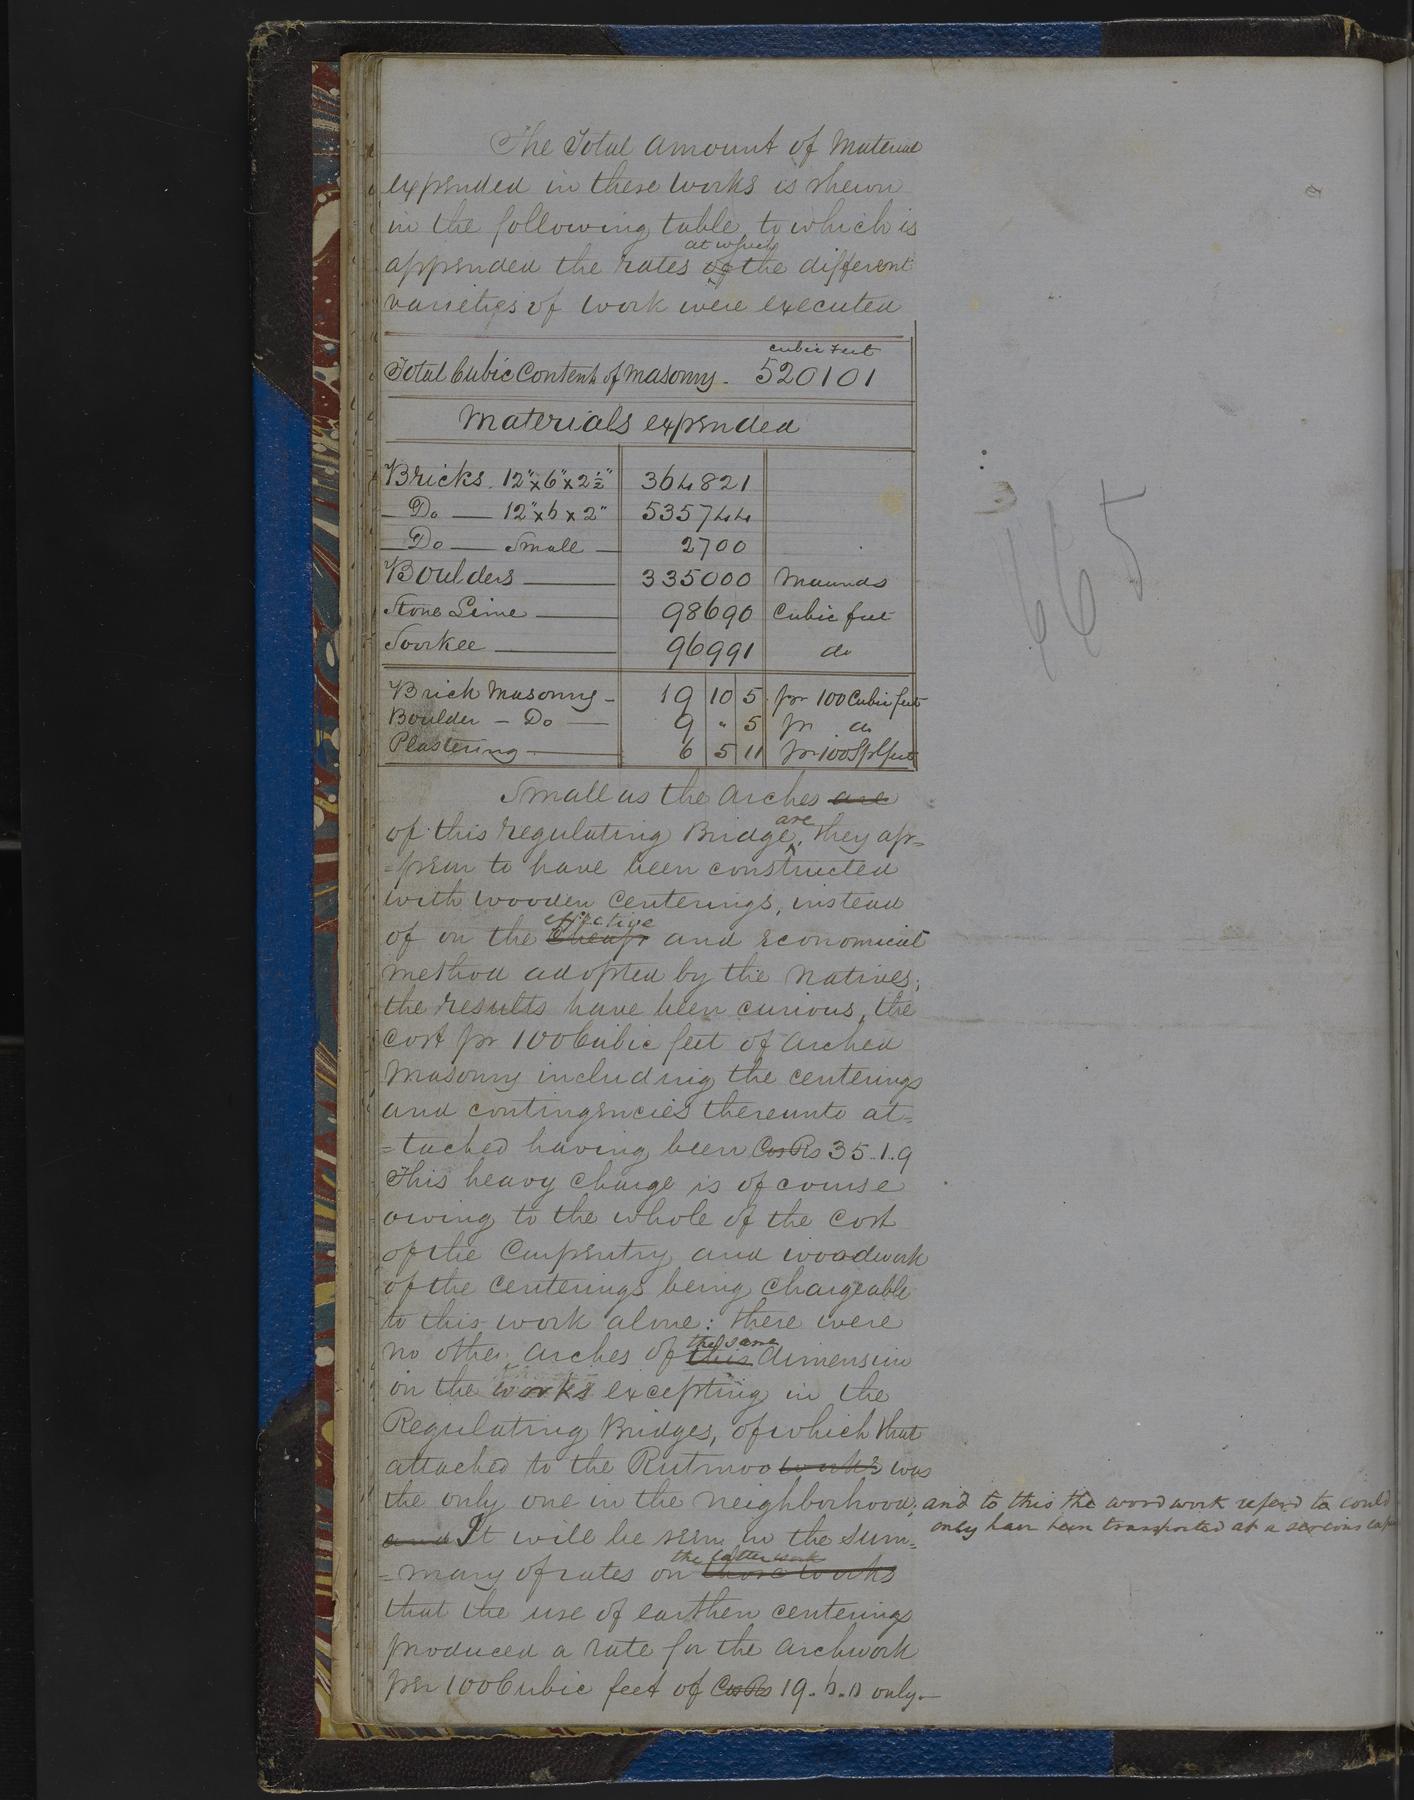 The Total Amount of Material
expended in these works is shewn
in the following table, to which is
at which
appended the rates of the different
varieties of work were executed
cubic feet
Total Cubic Contents of Masonry. 520101
Materials expended
Bricks. 12"x6"x2½" 364821
Do 12"x6x2" 535744
Do Small 2700
Boulders 335000 Maunds
Stone Lime 98690 Cubic feet
Soorkee 96991 do
Brick Masonry 19 10 5 pr 100 Cubic feet
Boulder - Do 9 " 5 pr do
Plastering 6 5 11 pr 100 Spl feet
665
Small as the Arches are
are
of this regulating Bridge, they ap=
=pear to have been constructed
with wooden centerings, instead
effective
of on the cheap and economical
method adopted by the natives;
the results have been curious, the
cost pr 100 Cubic feet of arched
Masonry including the centerings
and contingencies thereunto at=
=tached having been Cos Rs 35.1.9
This heavy charge is of course
owing to the whole of the cost
of the Carpentry and woodwork
of the centerings being chargeable
to this work alone: there were
the same
no other arches of this dimension
on the works excepting in the
Regulating Bridges, of which that
attached to the Rutmoo works was
the only one in the neighborhood; and to this the wood work referd to could
only have been transported at a serious
and It will be seen in the sum=
the latter work
=mary of rates on those works
that the use of earthen centerings
produced a rate for the archwork
per 100 Cubic feet of Cos Rs 19. only.—